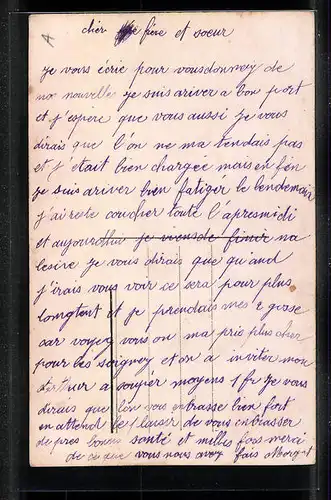 cher frère et soeur
je vous écrie pour vousdonnay de
nos nouvelles je suis ariver a bon port
et j'espère que vous aussi je vous
dirais que l'ôn ne ma tendais pas
et j'etait bien chargée mais enfin
je suis ariver bien fatiger le lendemain
j'ai resté coucher toute l'apresmidi
et aujourdhui je viensde finire na
lesive je vous dirais que quand
j'irais vous voir ce sera pour plus
longtent et je prendais mes 2 gosse
car voyez vous on ma pris plus cher
pour les soignoy et on a inviter mon
a soupér moyens 1 fr je vous
dirais que l'on vous enbrasse bien fort
en attend le plaisir de vous enbrasser
de pres bonne santé et milles fois merci
de ce que vous nous avez fais